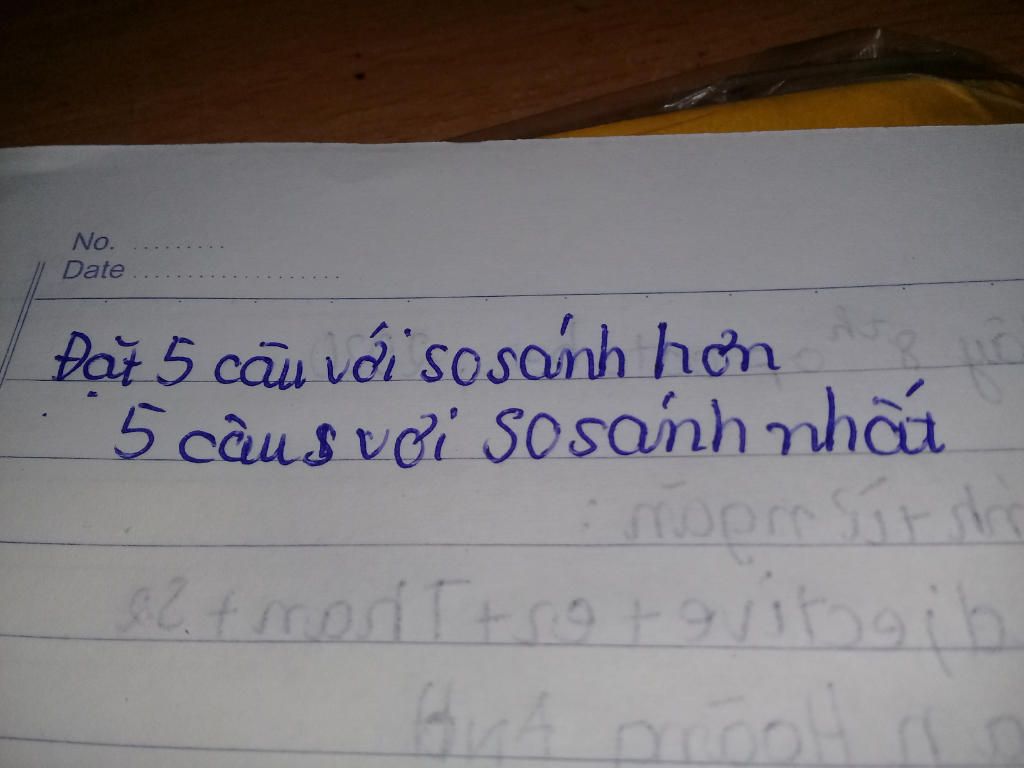 No. .........
Date ...................
Đặt 5 câu với so sánh hơn
5 câu với so sánh nhất